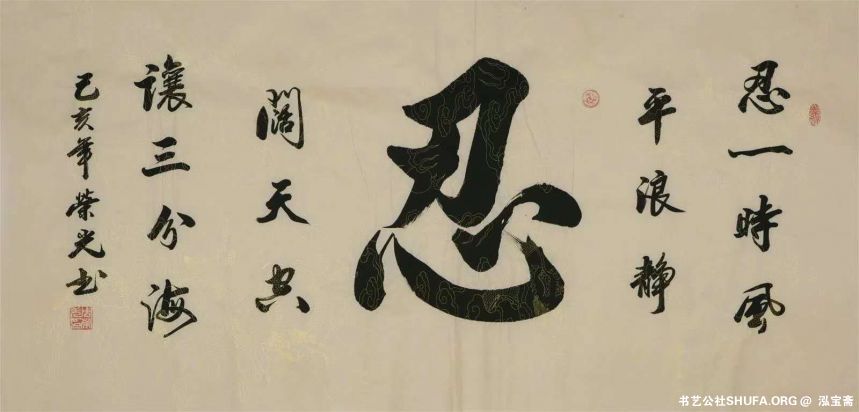 忍一時風
平浪静
忍
讓三分海
闊天空
己亥年榮光书
书艺公社SHUFA.ORG @ 泓宝斋